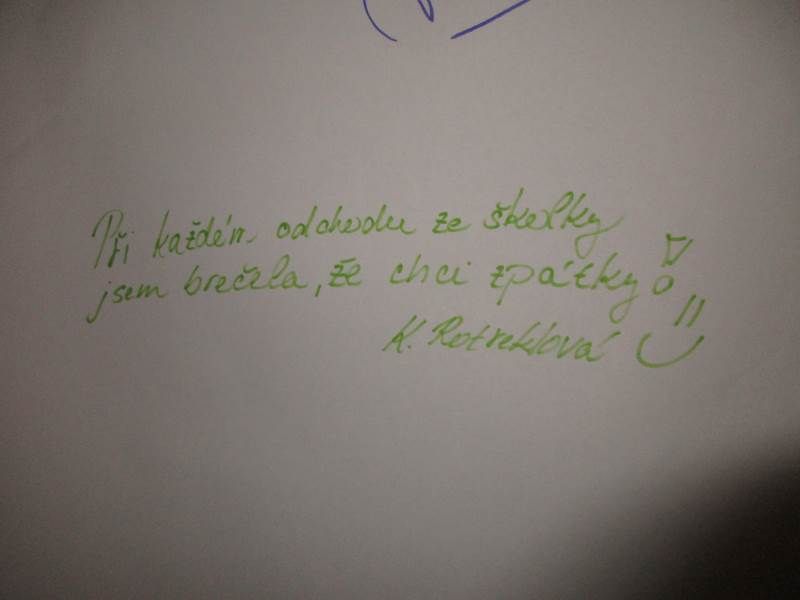 Při každém odchodu ze školky
jsem brečela, že chci zpátky!
K. Rotreklová